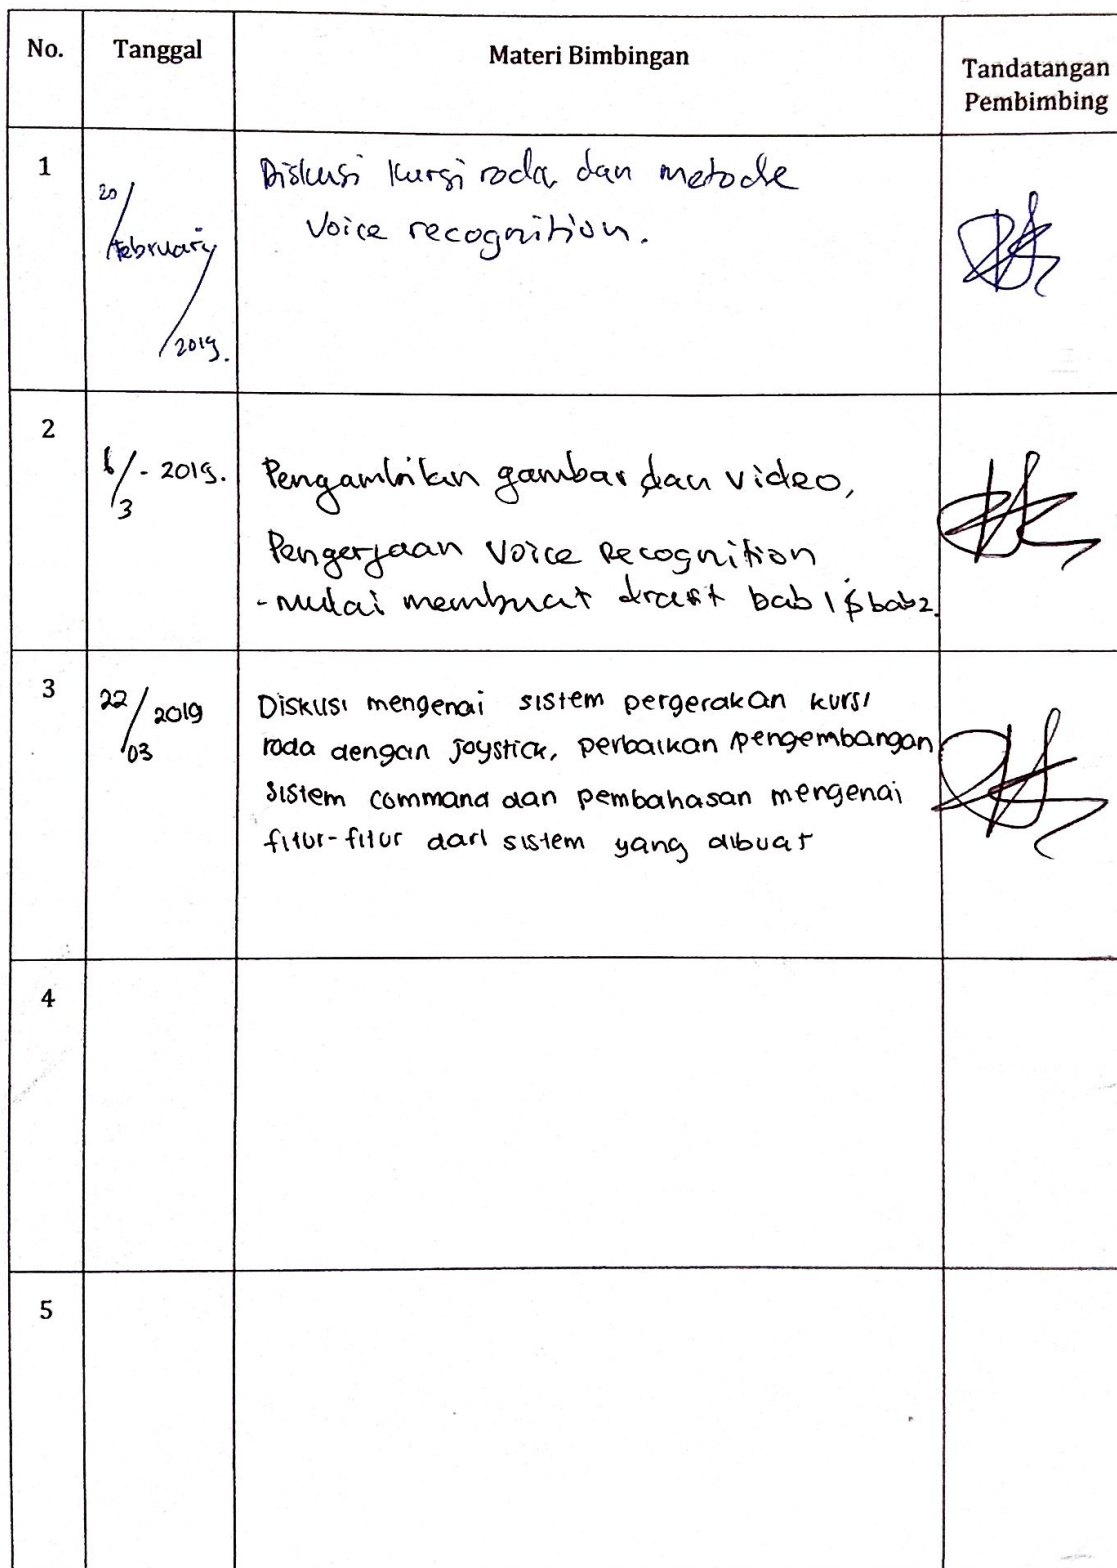 No. Tanggal Materi Bimbingan Tandatangan
Pembimbing
1
20/
February
/2019.
Diskusi kursi roda dan metode
Voice recognition.
2
6/3 - 2019.
Pengambilan gambar dan video,
Pengerjaan Voice Recognition
- mulai membuat draft bab 1 & bab 2.
3
22/03 2019
Diskusi mengenai sistem pergerakan kursi
roda dengan joystick, perbaikan/pengembangan
sistem command dan pembahasan mengenai
fitur-fitur dari sistem yang dibuat
4
5